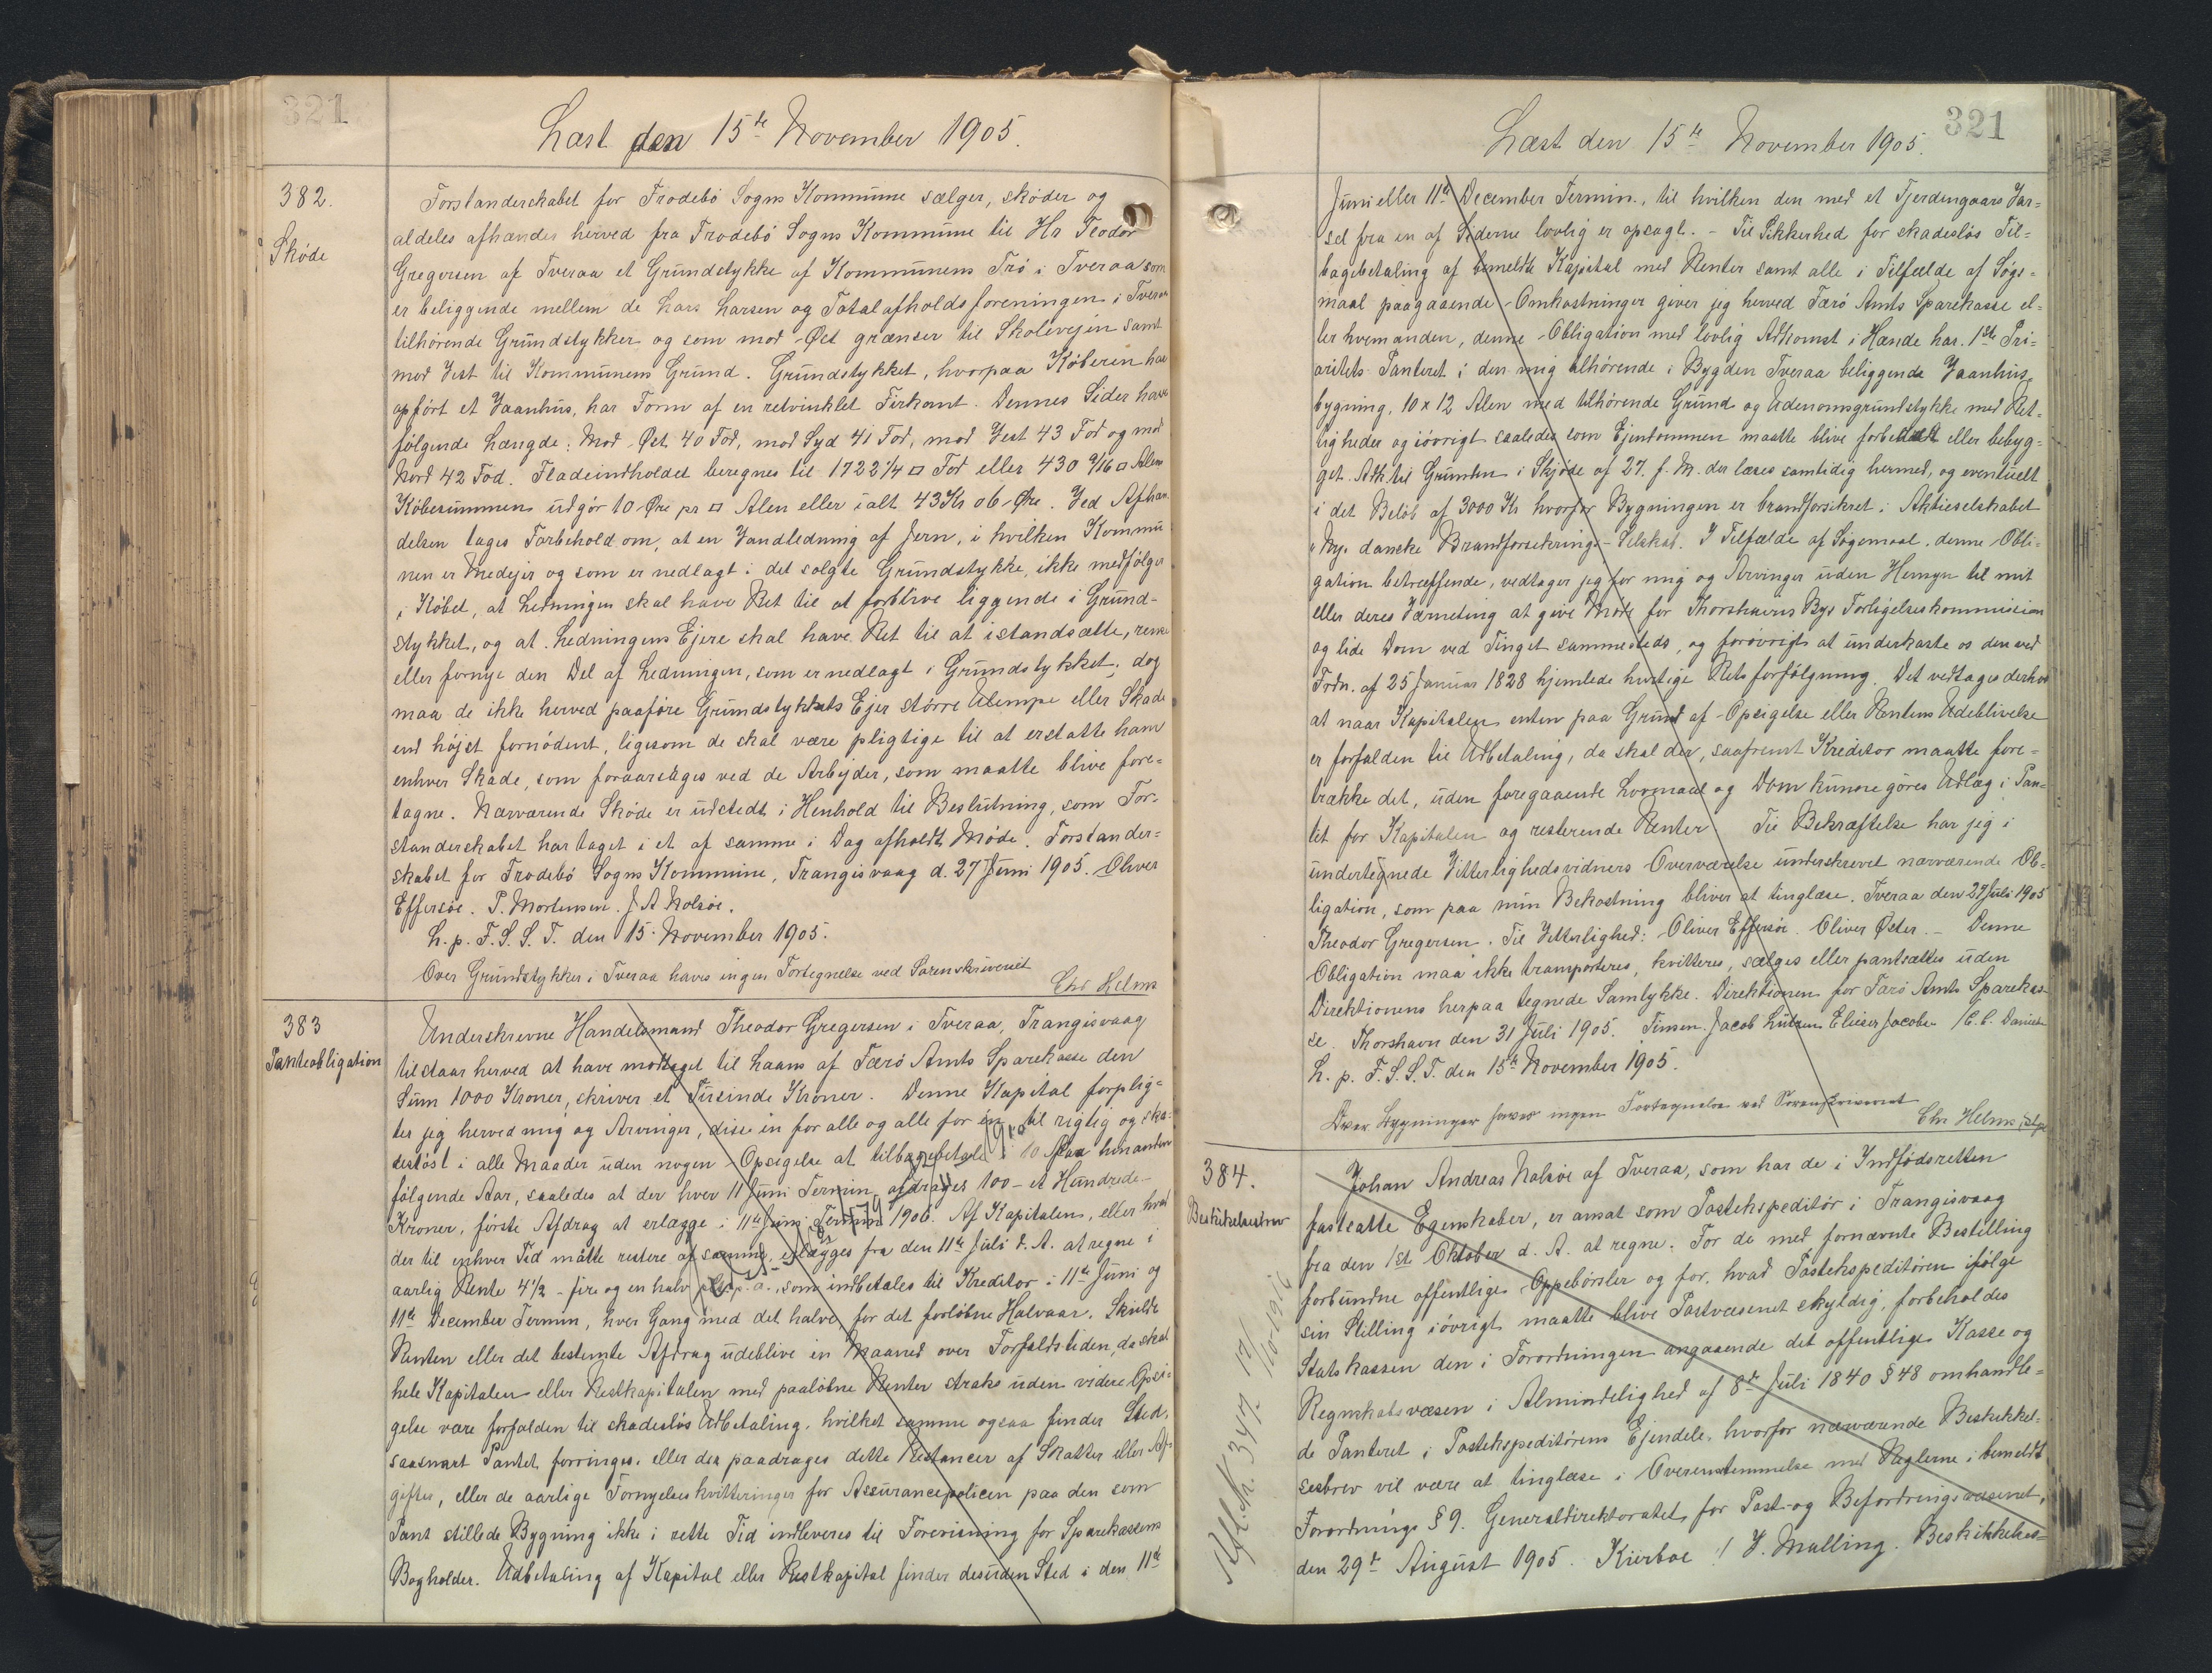 321
Læst den 15de November 1905.
382.
Skøde
Forstanderskabet for Frodebö Sogns Kommune sælger, skøder og
aldeles afhændes herved fra Frodebö Sogns Kommune til Hr Teodor
Gregersen af Tveraa et Grundstykke af Kommunens Trö i Tveraa som
er beliggende mellem de Lars Larsen og Totalafholdsforeningen i Tveraa
tilhörende Grundstykker og som mod Øst grænser til Skolevejen samt
mod Vest til Kommunens Grund. Grundstykket, hvorpaa Køberen har
opført et Vaanhus, har Form af en retvinklet Firkant. Dennes Sider have
følgende Længde: Mod Øst 40 Fod, mod Syd 41 Fod, mod Vest 43 Fod og mod
Nord 42 Fod. Fladeindholdet beregnes til 1722 1/4 □ Fod eller 430 9/16 □ Alen
Købesummen udgör 10 Øre pr □ Alen eller ialt 43 Kr 06 Øre. Ved Afhæn-
delsen tages Forbehold om, at en Vandledning af Jern, i hvilken Kommu
nen er Medejer og som er nedlagt i det solgte Grundstykke, ikke medfølger
i Købet, at Ledningen skal have Ret til at forblive liggende i Grund-
stykket, og at Ledningens Ejere skal have Ret til at istandsætte, rense
eller fornye den Del af Ledningen, som er nedlagt i Grundstykket; dog
maa de ikke herved paaføre Grundstykkets Ejer større Ulempe eller Skade
end højst fornødent, ligesom de skal være pligtige til at erstatte ham
enhver Skade, som foraarsages ved de Arbejder, som maatte blive fore=
tagne. Nærværende Skøde er udstedt i Henhold til Beslutning, som For-
standerskabet har taget i et af samme i Dag afholdt Møde. Forstander=
skabet for Frodebö Sogns Kommune, Trangisvaag d. 27 Juni 1905. Oliver
Effersöe. P. Mortensen. J A Nolsöe.
L. p. F. S. S. T. den 15. November 1905.
Over Grundstykker i Tveraa haves ingen Fortegnelse ved Sorenskriveriet
Chr Helms
383
Panteobligation
Underskrevne Handelsmand Theodor Gregersen i Tveraa, Trangisvaag
tilstaar herved at have modtaget til Laans af Færö Amts Sparekasse den
Sum 1000 Kroner, skriver et Tusinde Kroner. Denne Kapital forplig=
ter jeg herved mig og Arvinger, disse en for alle og alle for en til rigtig og ska-
deslöst i alle Maader uden nogen Opsigelse at tilbagebetale i 10 paa hinanden
følgende Aar, saaledes at der hver 11 Juni Termin afdrages 100 - et Hundrede -
Kroner, förste Afdrag at erlægge i 11te Juni Termin 1906. Af Kapitalen, eller hvad
der til enhver Tid måtte restere af samme, erlægges fra den 11te Juli d. A. at regne i
aarlig Rente 4 1/2 - fire og en halv - p. a. som indbetales til Kreditor i 11te Juni og
11te December Termin, hver Gang med det halve for det forløbne Halvaar. Skulde
Renten eller det bestemte Afdrag udeblive en Maaned over Forfaldstiden, da skal
hele Kapitalen eller Restkapitalen med paaløbne Renter straks uden videre Opsi=
gelse være forfalden til skadesløs Udbetaling, hvilket samme ogsaa finder Sted,
saasnart Pantet forringes, eller der paadrages dette Restancer af Skatter eller Af-
gifter, eller de aarlige Fornyelseskvitteringer for Assurancepolicen paa den som
Pant stillede Bygning ikke i rette Tid indleveres til Forevisning for Sparekassens
Bogholder. Udbetaling af Kapital eller Restkapital finder desuden Sted i den 11te
321
Læst den 15te November 1905.
Juni eller 11te December Termin, til hvilken den med et Fjerdingaars Var=
sel fra en af Siderne lovlig er opsagt. - Til Sikkerhed for skadesløs Til=
bagebetaling af bemeldte Kapital med Renter samt alle i Tilfælde af Søgs=
maal paagaaende Omkostninger giver jeg herved Færö Amts Sparekasse el=
ler hvemanden, denne Obligation med lovlig Adkomst i Hænde har. 1ste Pri=
oritets Panteret i den mig tilhörende i Bygden Tveraa beliggende Vaanhus
bygning, 10 x 12 Alen med tilhörende Grund og Udenomsgrundstykke med Ret=
tigheder og iövrigt saaledes som Ejendommen maatte blive forbedret eller bebyg=
get. Adk. til Grunden i Skjøde af 27. f. M. der læses samtidig hermed, og eventuelt
i det Beløb af 3000 Kr hvorfor Bygningen er brandforsikret i Aktieselskabet
"Nye danske Brandforsikrings-Selskab. I Tilfælde af Søgsmaal, denne Obli=
gation betræffende, vedtager jeg for mig og Arvinger uden Hensyn til mit
eller deres Værneting at give Møde for Thorshavns Bys Forligelseskommission
og lide Dom ved Tinget sammesteds, og forøvrigt at underkaste os den ved
Frdn. af 25 Januar 1828 hjemlede hurtige Retsforfølgning. Det vedtages derhos
at naar Kapitalen enten paa Grund af Opsigelse eller Rentens Udeblivelse
er forfalden til Udbetaling, da skal der, saafremt Kreditor maatte fore=
trække det, uden foregaaende Lovmaal og Dom kunne göres Udlæg i Pan=
tet for Kapitalen og resterende Renter. Til Bekræftelse har jeg i
undertegnede Vitterlighedsvidners Overværelse underskrevet nærværende Ob=
ligation, som paa min Bekostning bliver at tinglæse. Tveraa den 27 Juli 1905
Theodor Gregersen. Til Vitterlighed: Oliver Effersöe. Oliver Øster. - Denne
Obligation maa ikke transporteres, kvitteres, sælges eller pantsættes uden
Direktionens herpaa tegnede Samtykke. Direktionen for Færö Amts Sparekas-
se. Thorshavn den 31 Juli 1905. Jacob Lützen Elieser Jacobsen
L. p. F. S. S. T. den 15te November 1905.
Over Bygninger haves ingen Fortegnelse ved Sorenskriveriet
Chr Helms
384.
Beskikkelsesbrev
Johan Andreas Nolsöe af Tveraa, som har de i Indfødsretten
fastsatte Egenskaber, er ansat som Postekspeditør i Trangisvaag
fra den 1st Oktober d. A. at regne. For de med fornævnte Bestilling
forbundne offentlige Oppebörsler og for, hvad Postekspeditören ifølge
sin Stilling iøvrigt maatte blive Postvæsenet skyldig, forbeholdes
Statskassen den i Forordningen angaaende det offentlige Kasse og
Regnskabsvæsen i Almindelighed af 8de Juli 1840 § 48 omhandle=
de Panteret i Postekspeditörens Ejendele, hvorfor nærværende Beskikkel=
sesbrev vil være at tinglæse i Overensstemmelse med Reglerne i bemeldt
Forordnings § 9. Generaldirektoratet for Post- og Befordringsvæsenet,
den 29de August 1905. Kiørboe / V. Malling. Beskikkelses=